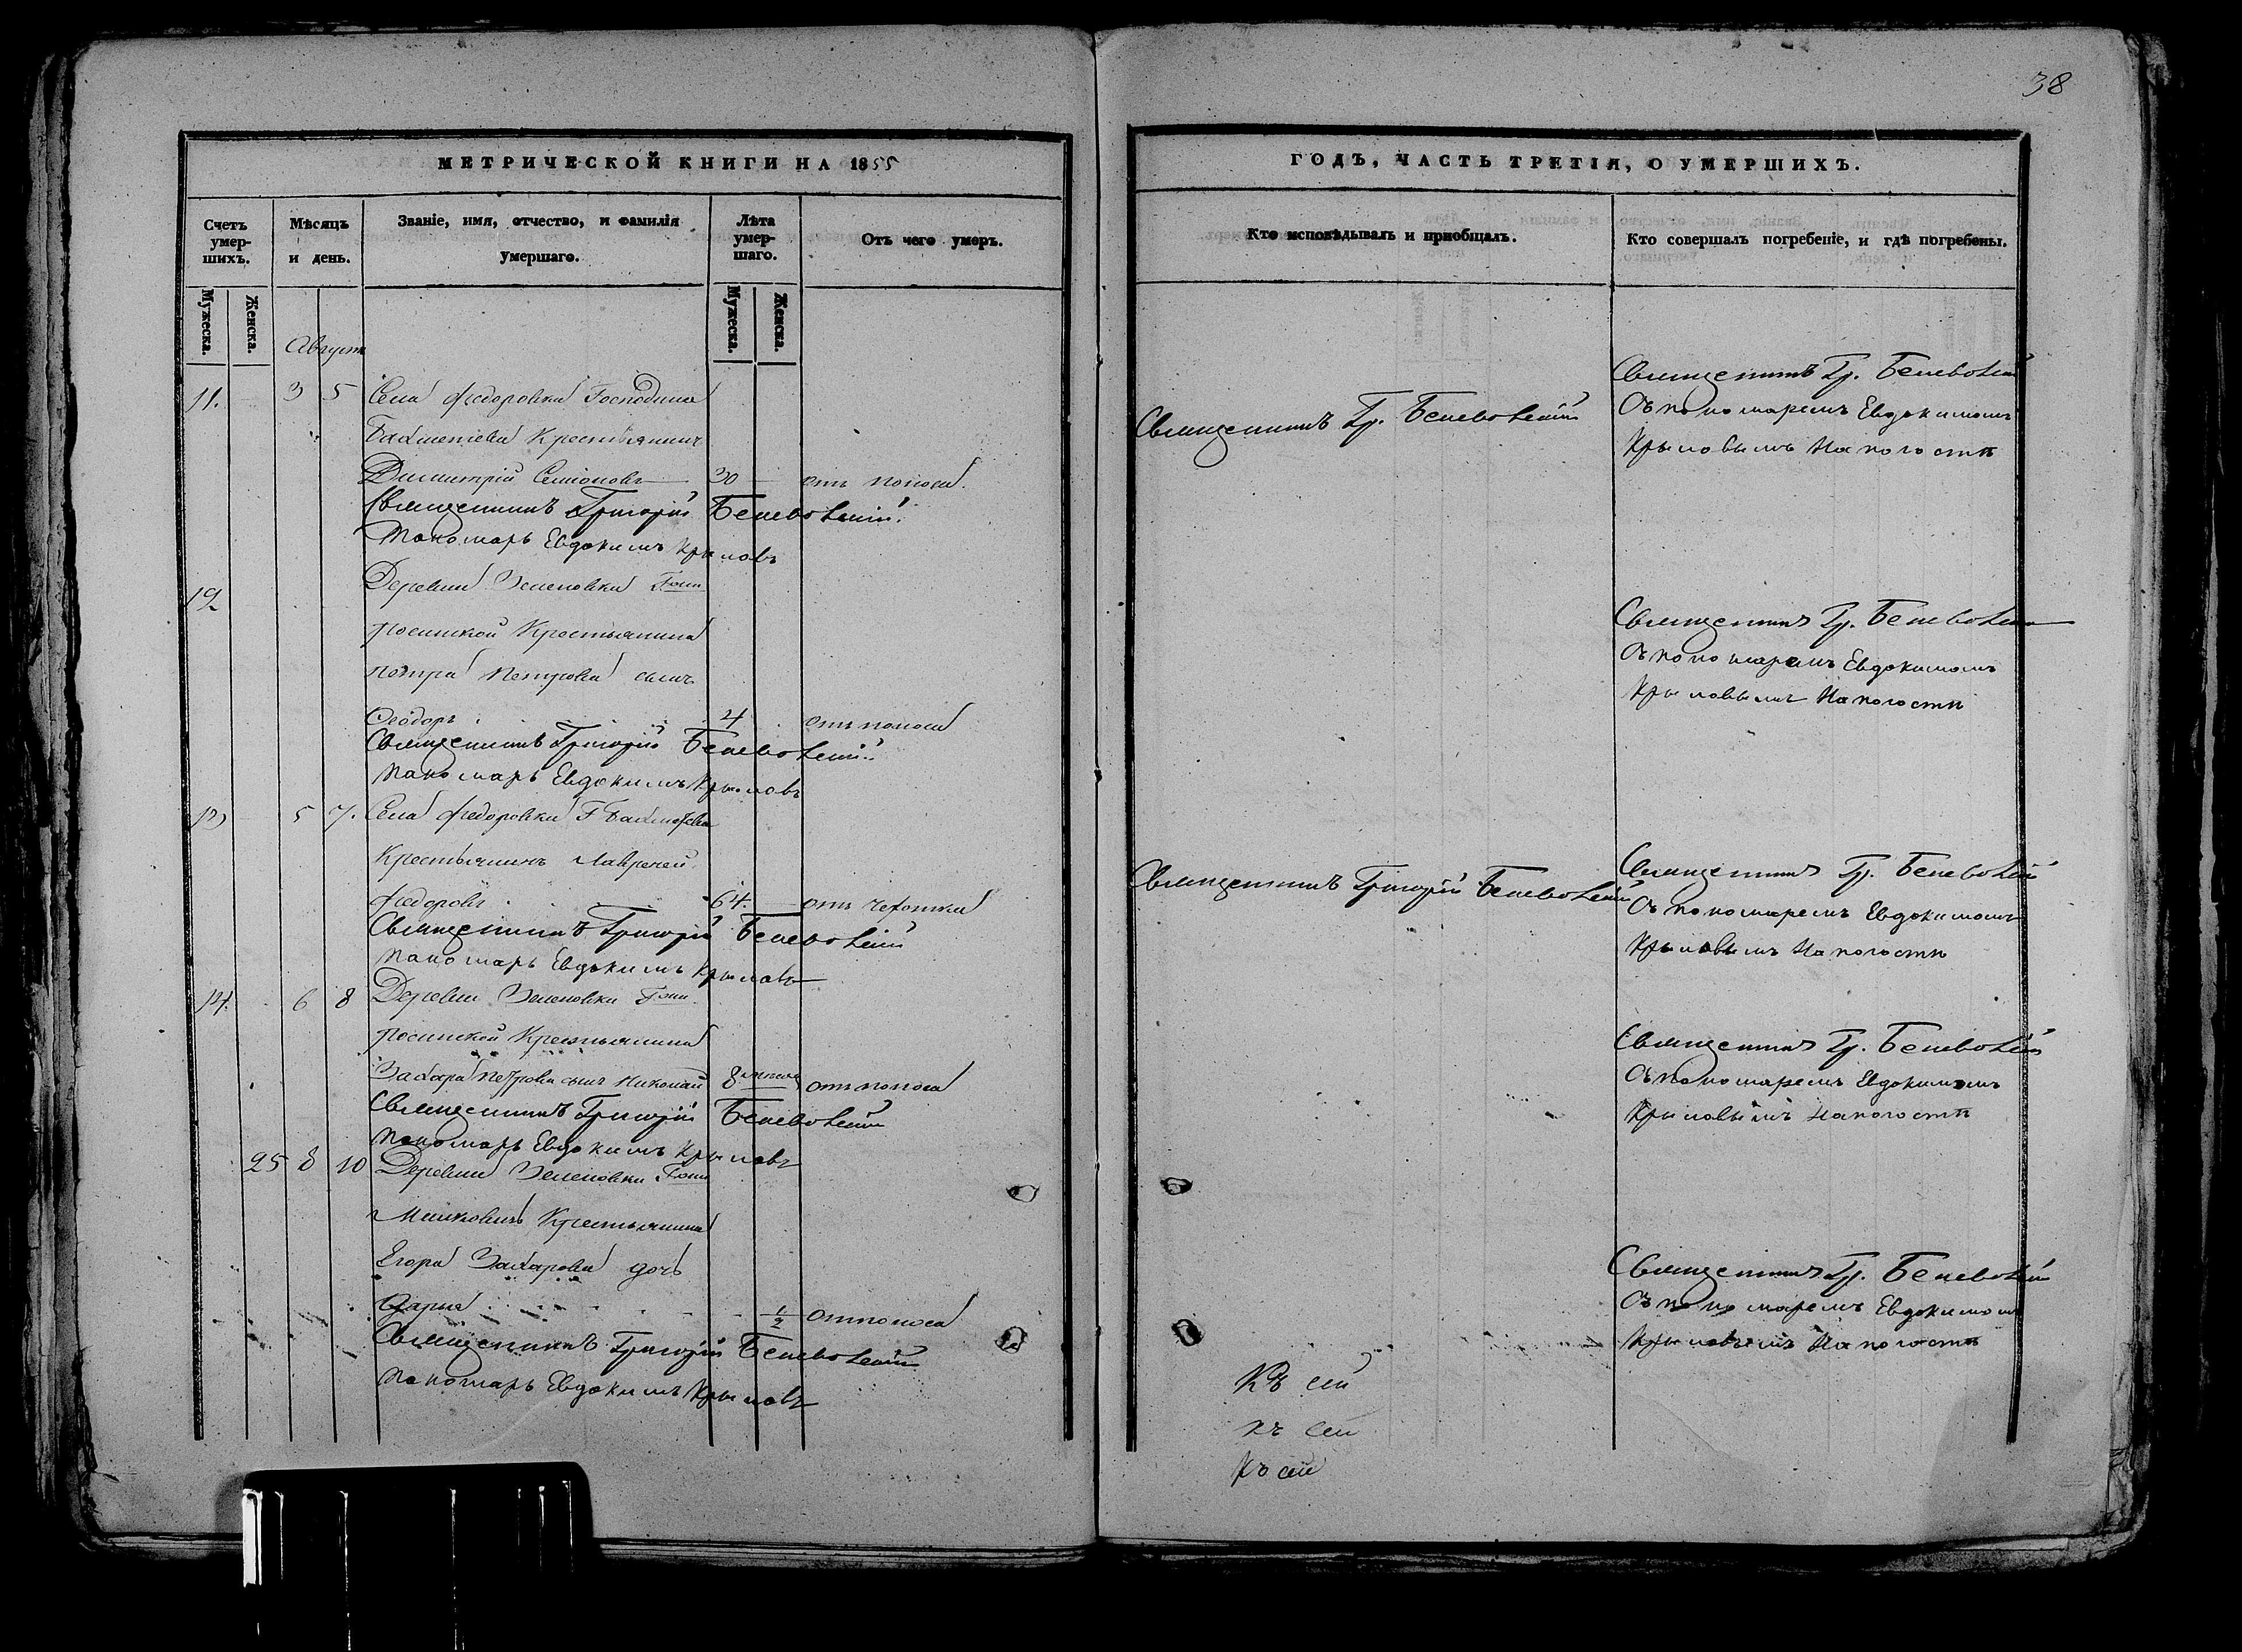 38
МЕТРИЧЕСКОЙ КНИГИ НА 1855
Счетъ умер-шихъ.
Мѣсяцъ и день.
Званіе, имя, отчество, и фамилія умершаго.
Лѣта умер-шаго.
Отъ чего умеръ.
Мужеска.
Женска.
Мужеска.
Женска.
Августъ
11. 3 5 Села Федоровки Господина
Бахметева Крестьянинъ
Димитрій Семіоновъ 30 отъ поноса.
Священникъ Григорій
Пономарь Евдокимъ Крыловъ
12 Деревни Зеленовки Гони
Крестьянина
Петра Петрова сынъ
Ѳеодоръ 4 отъ поноса
Священникъ Григорій
Пономарь Евдокимъ Крыловъ
13 5 7. Села Федоровки Г Бахметева
Крестьянинъ Лаврентій
Федоровъ 64. отъ чахотки
Священникъ Григорій
Пономарь Евдокимъ Крыловъ
14. 6 8 Деревни Зеленовки Гони
Крестьянина
Захара Петрова сынъ Николай 8 отъ поноса
Священникъ Григорій
Пономарь Евдокимъ Крыловъ
25 8 10 Деревни Зеленовки Гони
Крестьянина
Егора Захарова дочь
Дарья 1/2 отъ поноса
Священникъ Григорій
Пономарь Евдокимъ Крыловъ
ГОДЪ, ЧАСТЬ ТРЕТІЯ, О УМЕРШИХЪ.
Кто исповѣдывалъ и пріобщалъ.
Кто совершалъ погребеніе, и гдѣ погребены.
Священникъ Гр.
Священникъ Гр.
Съ пономаремъ Евдокимомъ
Крыловымъ На погостѣ
Священникъ Гр.
Съ пономаремъ Евдокимомъ
Крыловымъ На погостѣ
Священникъ Григорій
Священникъ Гр.
Съ пономаремъ Евдокимомъ
Крыловымъ На погостѣ
Священникъ Гр.
Съ пономаремъ Евдокимомъ
Крыловымъ На погостѣ
Священникъ Гр.
Съ пономаремъ Евдокимомъ
Крыловымъ На погостѣ
Къ сей
къ сей
Къ сей